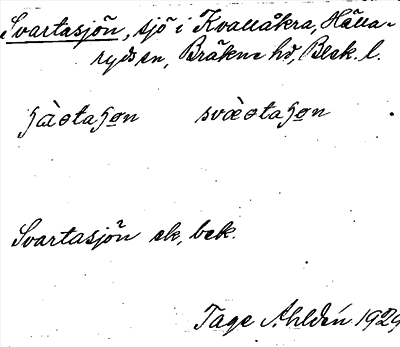 Svartasjön, sjö i Kvallåkra, Hälla-
ryds sn, Bräkne hd, Blek. l.
svàɵtaɧo̲n
Svartasjön ek, bek.
Tage Ahldén 1929